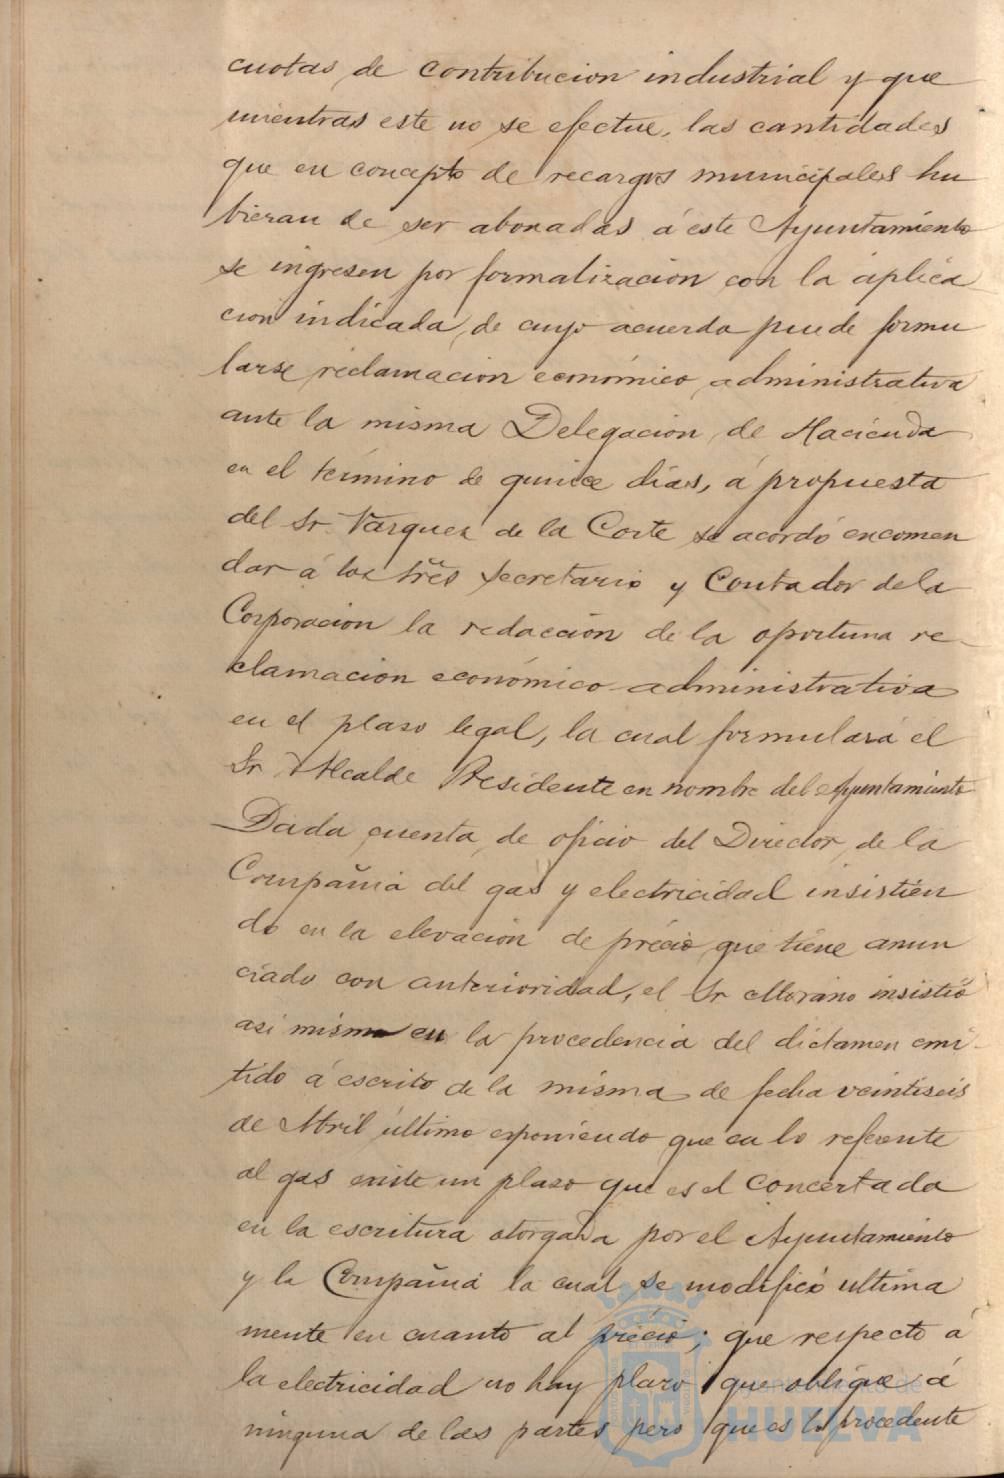 cuotas de contribucion industrial y que
mientras este no se efectue, las cantidades
que en concepto de recargos municipales hu
bieran de ser abonadas á este Ayuntamiento
se ingresen por formalizacion con la aplica
cion indicada, de cuyo acuerdo puede formu
larse reclamacion económico administrativa
ante la misma Delegacion de Hacienda
en el término de quince dias, á propuesta
del Sr. Vazquez de la Corte se acordó encomen
dar á los Sres Secretario y Contador de la
Corporacion la redaccion de la oportuna re-
clamacion económico-administrativa
en el plaso legal, la cual formulará el
Sr Alcalde Presidente en nombre del Ayuntamiento
Dada cuenta de oficio del Director de la
Compañia del gas y electricidad insistien
do en la elevacion de précio que tiene anun
ciado con anterioridad, el Sr Morano insistió
asi mismo en la procedencia del dictamen emi-
tido á escrito de la misma de fecha veintiseis
de Abril último esponiendo que en lo referente
al gas existe un plaso que es el concertado
en la escritura otorgada por el Ayuntamiento
y la Compañia la cual se modificó ultima
mente en cuanto al précio; que respecto á
la electricidad no hay plazo que obligue á
ninguna de las partes pero que es lo procedente
Ayuntamiento de
HUELVA